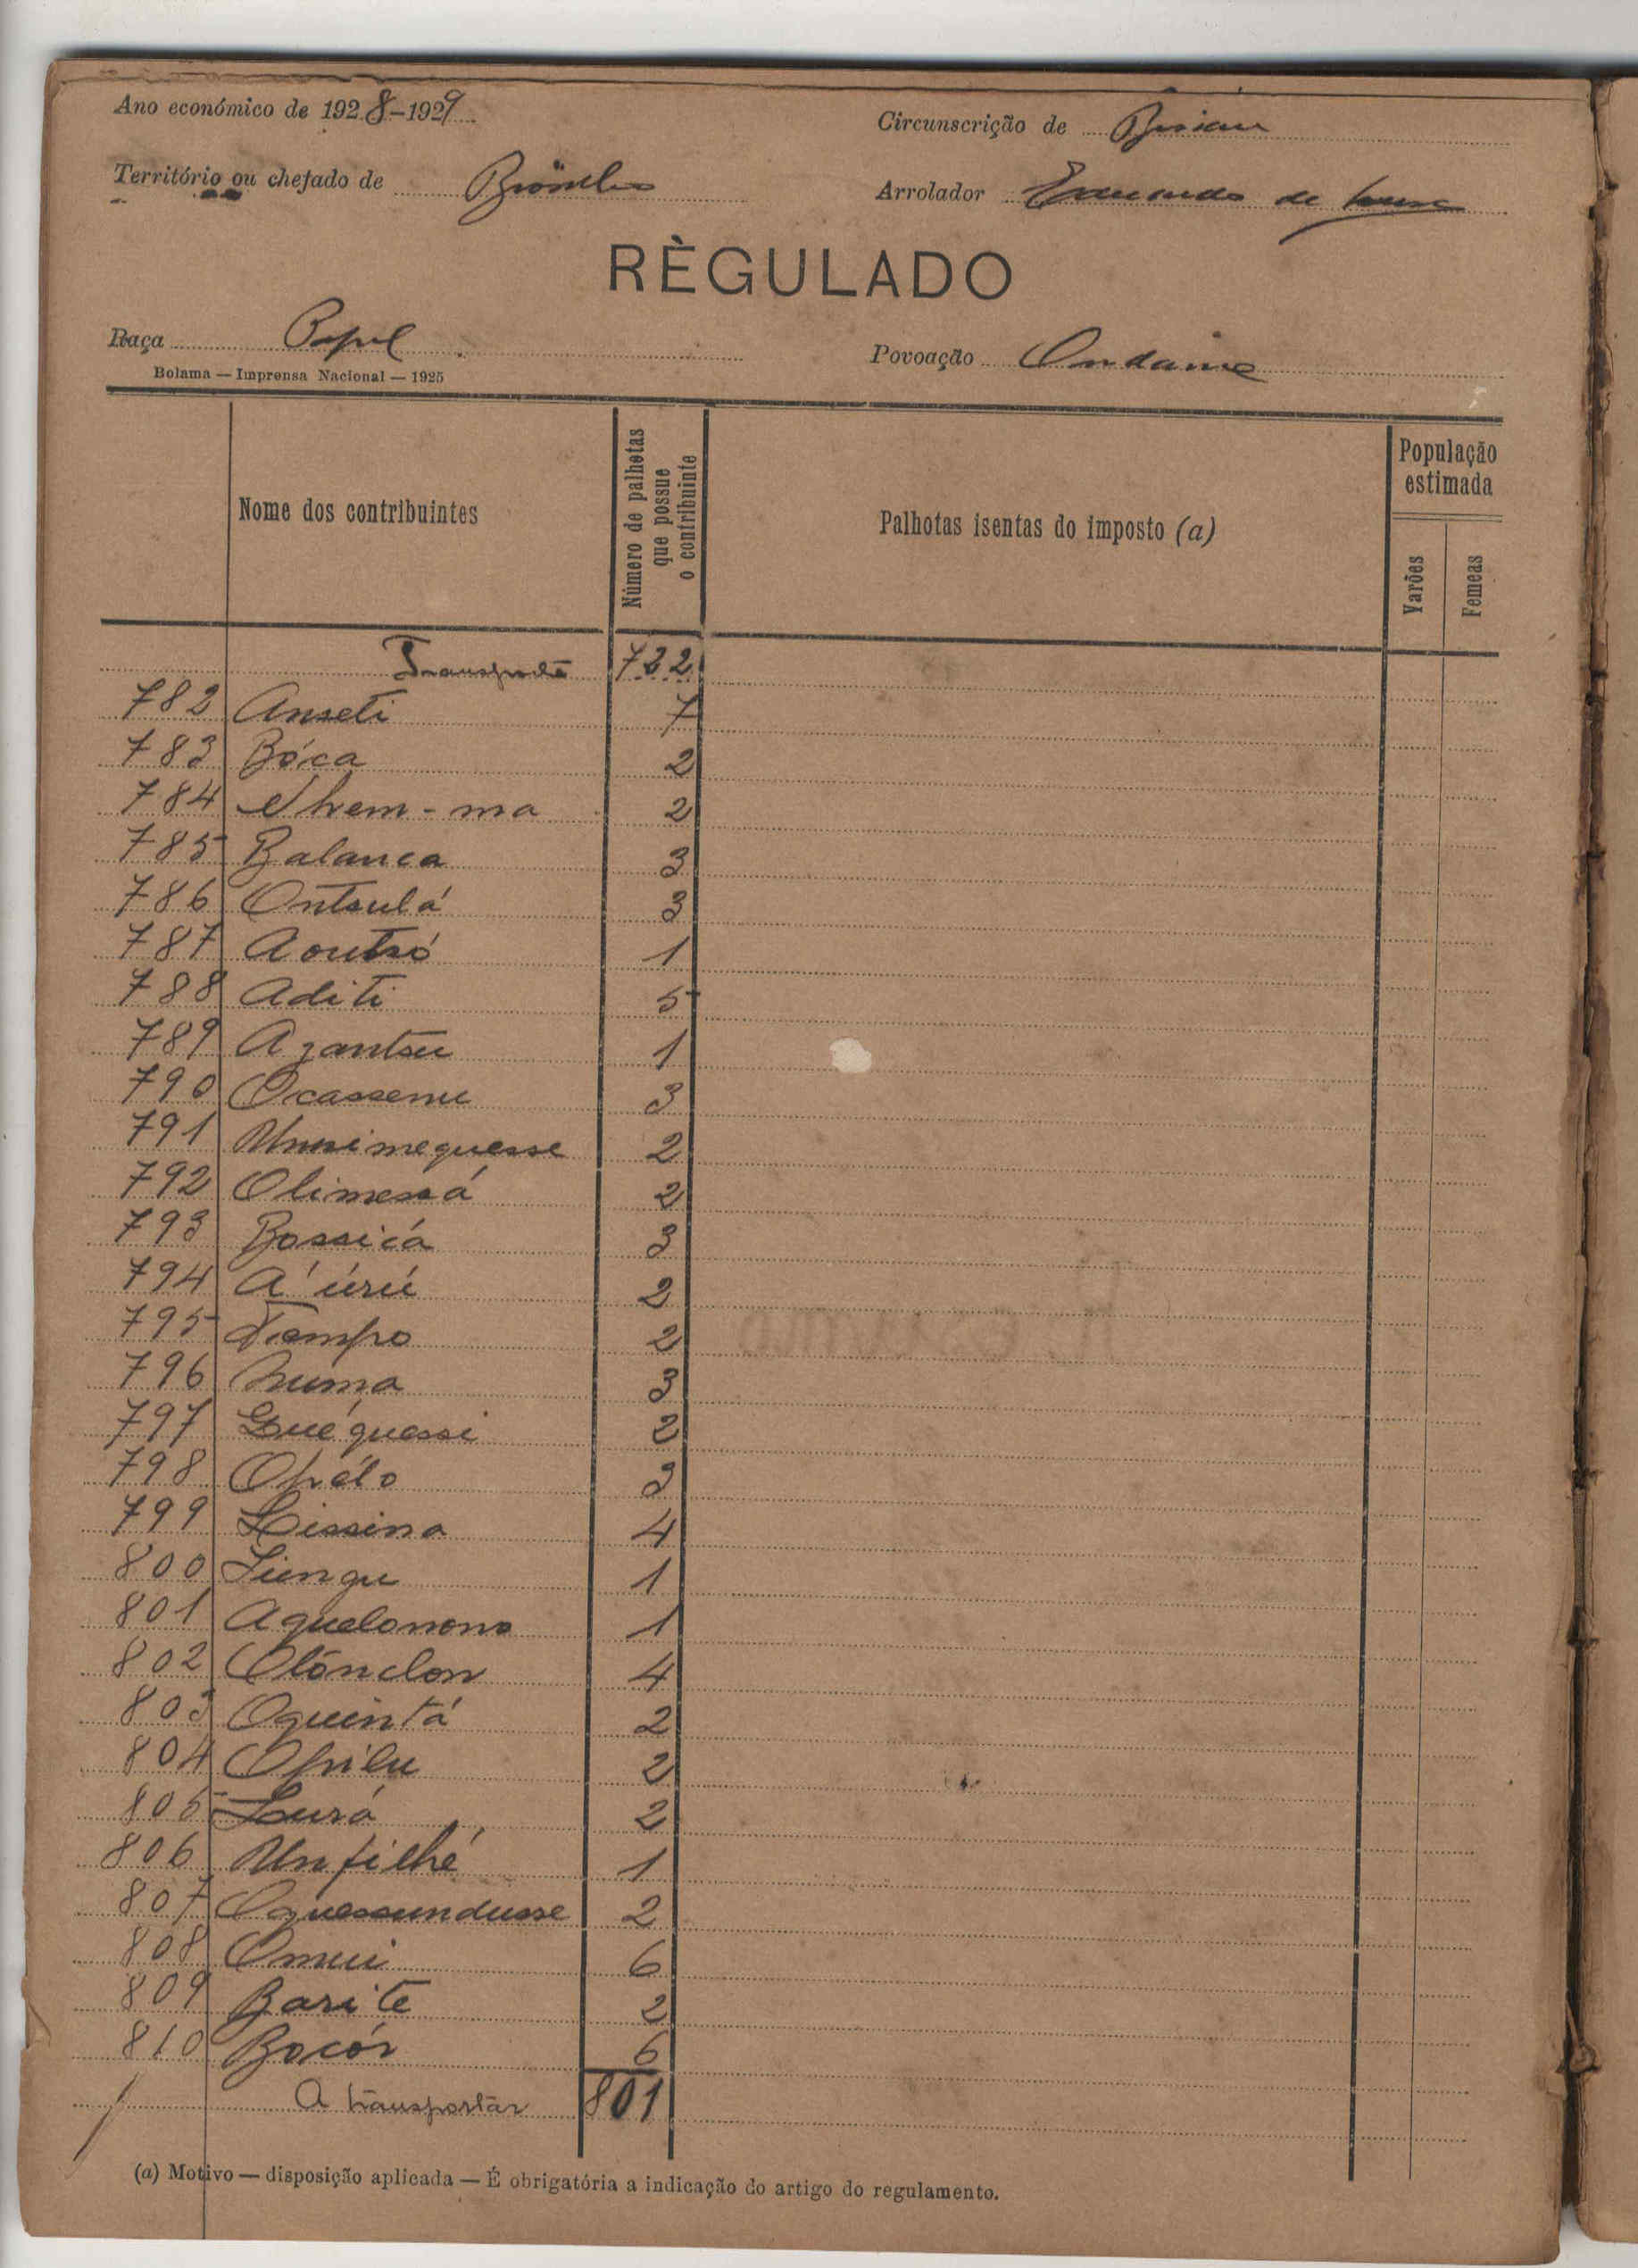 Ano económico de 1928-1929
Circunscrição de
Território ou chefado de
Arrolador de
RÈGULADO
Raça Papel
Povoação Ondame
Bolama — Imprensa Nacional — 1925
Nome dos contribuintes
Número de palhotas que possue o contribuinte
Palhotas isentas do imposto (a)
População estimada
Varões
Femeas
Transporte 732
782 Anseti 7
783 Bóca 2
784 Nhem-ma 2
785 Balanca 3
786 Ontsulá 3
787 Aoutsó 1
788 Aditi 5
789 Azantsu 1
790 Ocassenu 3
791 2
792 Olimessá 2
793 Bossicá 3
794 A'úrú 2
795 Tempo 2
796 Numa 3
797 Guéquessi 2
798 Opélo 3
799 Lissina 4
800 Siengu 1
801 Aquelonono 1
802 Olónclon 4
803 Oquintá 2
804 Opilu 2
805 Lurá 2
806 Unfilhé 1
807 Oquessundusse 2
808 Omui 6
809 Barite 2
810 Bocór 6
A transportar 801
(a) Motivo — disposição aplicada — É obrigatória a indicação do artigo do regulamento.